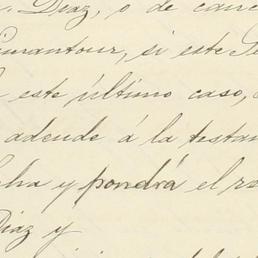 Diaz, o de
Limantour, si este
este último caso,
adeude á la
y pondrá el
Diaz y